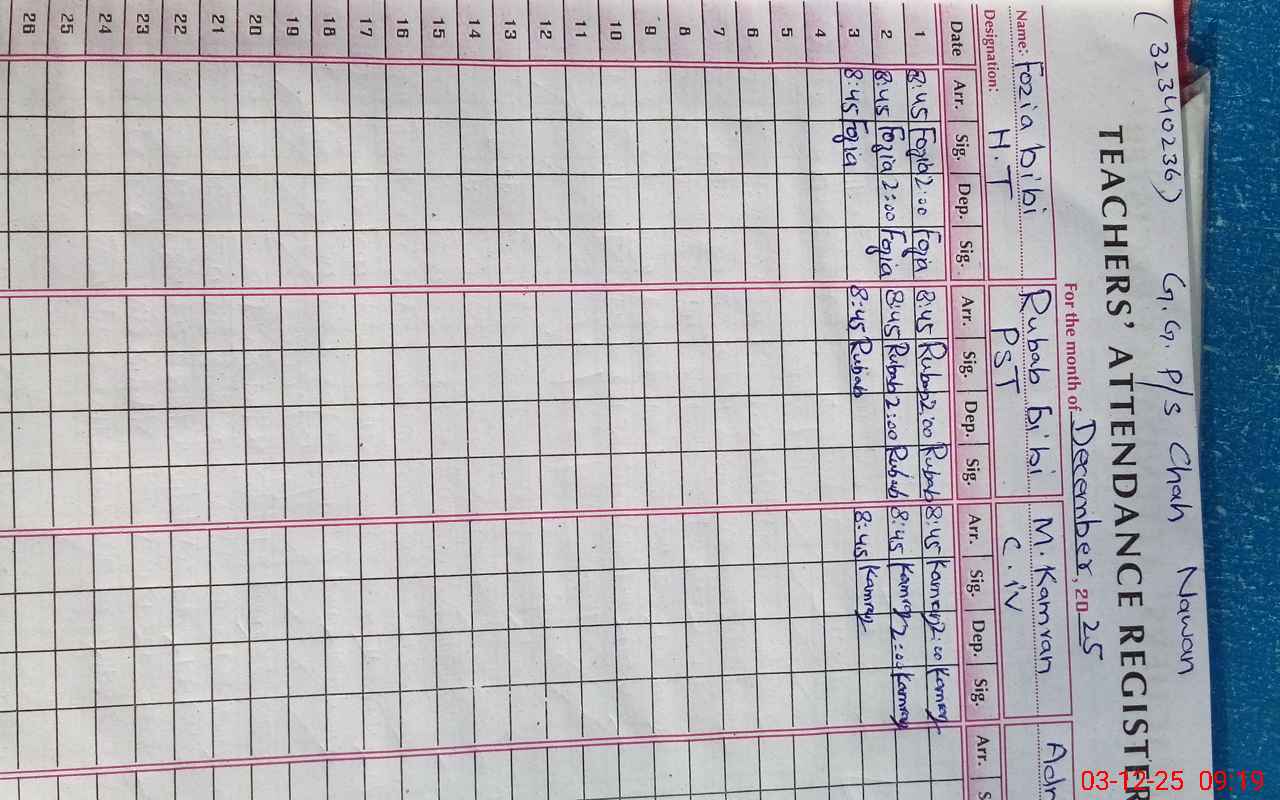 (32340236) G.G.P/S Chah Nawan
TEACHERS' ATTENDANCE REGISTER
For the month of December, 2025
Name: Fozia bibi
Rubab bibi
M. Kamran
Adn
Designation: H.T
PST
C.iv
Date Arr. Sig. Dep. Sig. Arr. Sig. Dep. Sig. Arr. Sig. Dep. Sig. Arr. S
1 8:45 Fozia 2:00 Fozia 8:45 Rubab 2:00 Rubab 8:45 Kamran 2:00 Kamran
2 8:45 Fozia 2:00 Fozia 8:45 Rubab 2:00 Rubab 8:45 Kamran 2:00 Kamran
3 8:45 Fozia 8:45 Rubab 8:45 Kamran
4
5
6
7
8
9
10
11
12
13
14
15
16
17
18
19
20
21
22
23
24
25
26
03-12-25 09:19